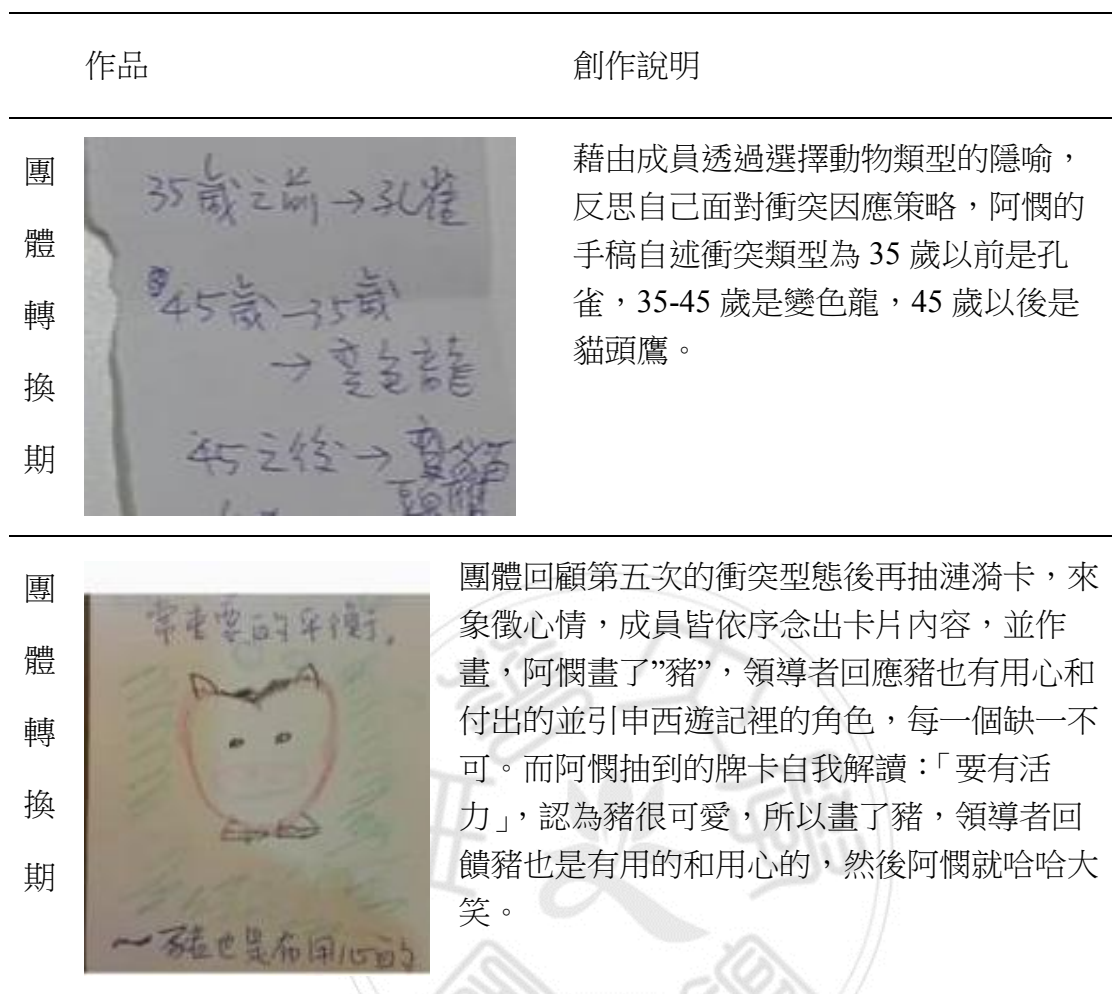 作品
創作說明
團體轉換期
35歲之前→孔雀
45歲—35歲
→變色龍
45之後→貓
頭鷹
藉由成員透過選擇動物類型的隱喻，
反思自己面對衝突因應策略，阿憫的
手稿自述衝突類型為 35 歲以前是孔
雀，35-45 歲是變色龍，45 歲以後是
貓頭鷹。
團體轉換期
常重要的平衡。
～豬也是有用心的
團體回顧第五次的衝突型態後再抽漣漪卡，來
象徵心情，成員皆依序念出卡片內容，並作
畫，阿憫畫了”豬”，領導者回應豬也有用心和
付出的並引申西遊記裡的角色，每一個缺一不
可。而阿憫抽到的牌卡自我解讀：「要有活
力」，認為豬很可愛，所以畫了豬，領導者回
饋豬也是有用的和用心的，然後阿憫就哈哈大
笑。